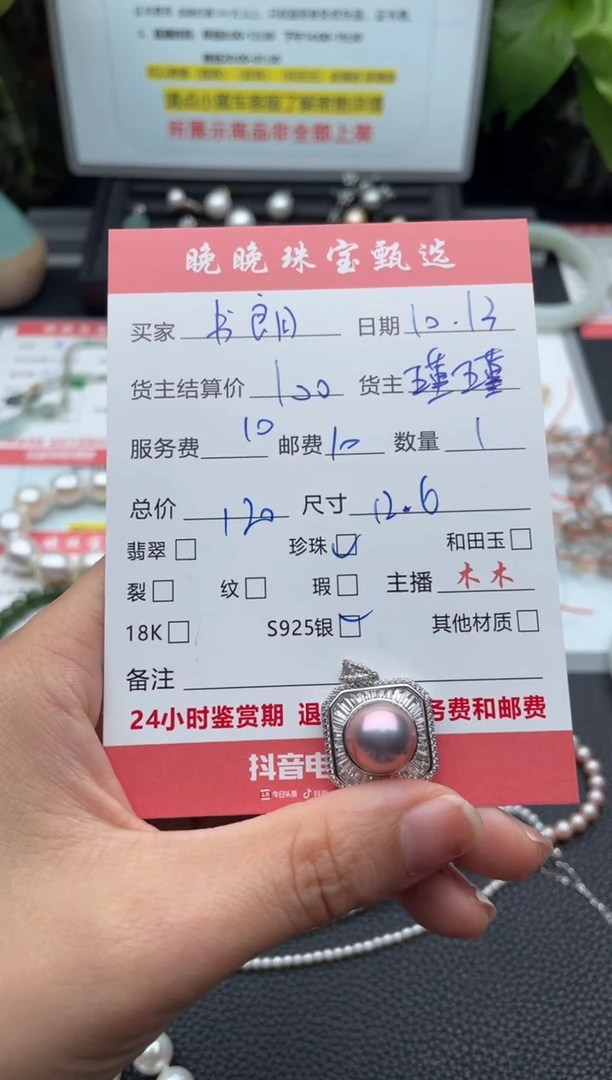 请点小黄车客服了解商品详情
所展示商品非全部上架
晚晚珠宝甄选
买家 书朗 日期 10.13
货主结算价 100 货主 瑾瑾
服务费 10 邮费 10 数量 1
总价 120 尺寸 12.6
翡翠 珍珠 和田玉
裂 纹 瑕 主播 木木
18K S925银 其他材质
备注
24小时鉴赏期 退 务费和邮费
抖音电
今日头条 抖音